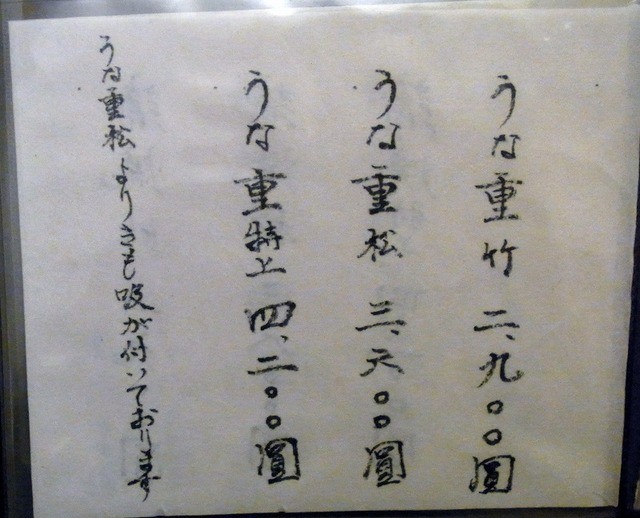 うな重竹 二、九〇〇圓
うな重松 三、六〇〇圓
うな重特上 四、二〇〇圓
うな重松よりきも吸が付いております